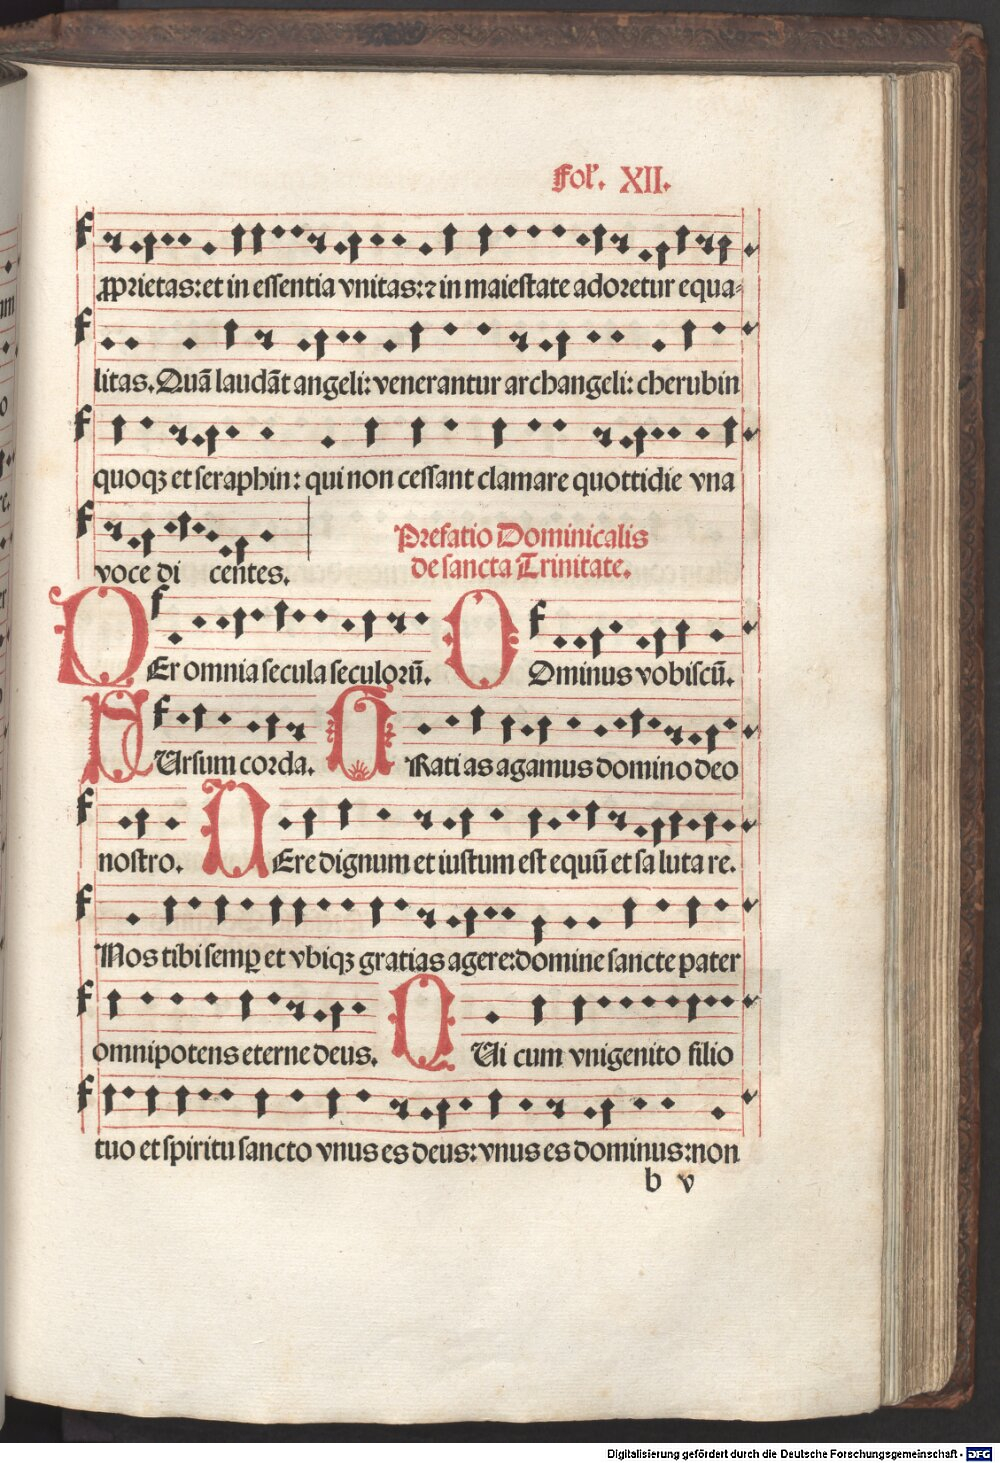 Fol'. XII.
ꝓprietas: et in essentia vnitas: ⁊ in maiestate adoretur equa⸗
litas. Quā laudāt angeli: venerantur archangeli: cherubin
quoqꝫ et seraphin: qui non cessant clamare quottidie vna
voce di centes.
Prefatio Dominicalis
de sancta Trinitate.
PEr omnia secula seculorū. DOminus vobiscū.
SUrsum corda. GRati as agamus domino deo
nostro. VEre dignum et iustum est equū et sa luta re.
Nos tibi semꝑ et vbiqꝫ gratias agere: domine sancte pater
omnipotens eterne deus. QUi cum vnigenito filio
tuo et spiritu sancto vnus es deus: vnus es dominus: non
b v
Digitalisierung gefördert durch die Deutsche Forschungsgemeinschaft - DFG